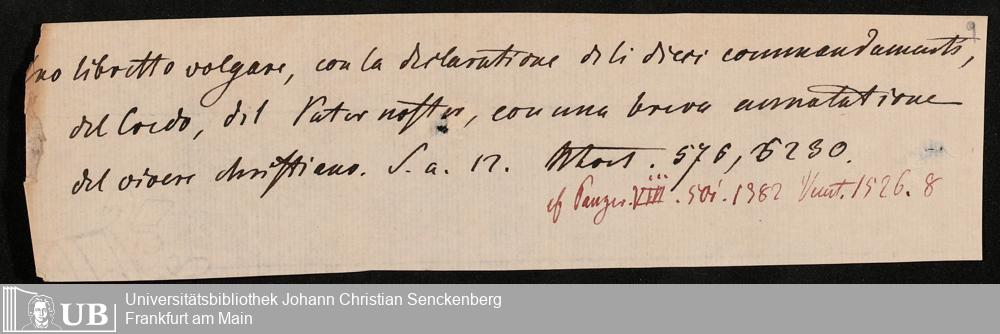 no libretto volgare, con la declaratione de li dieci commandamenti,
del Credo, del Pater noster, con una breve annotatione
del vivere christiano. S. a. 12. 576, 6230.
cf Panzer. VIII. 501. 1382 Venet. 1526. 8
UB
Universitätsbibliothek Johann Christian Senckenberg
Frankfurt am Main